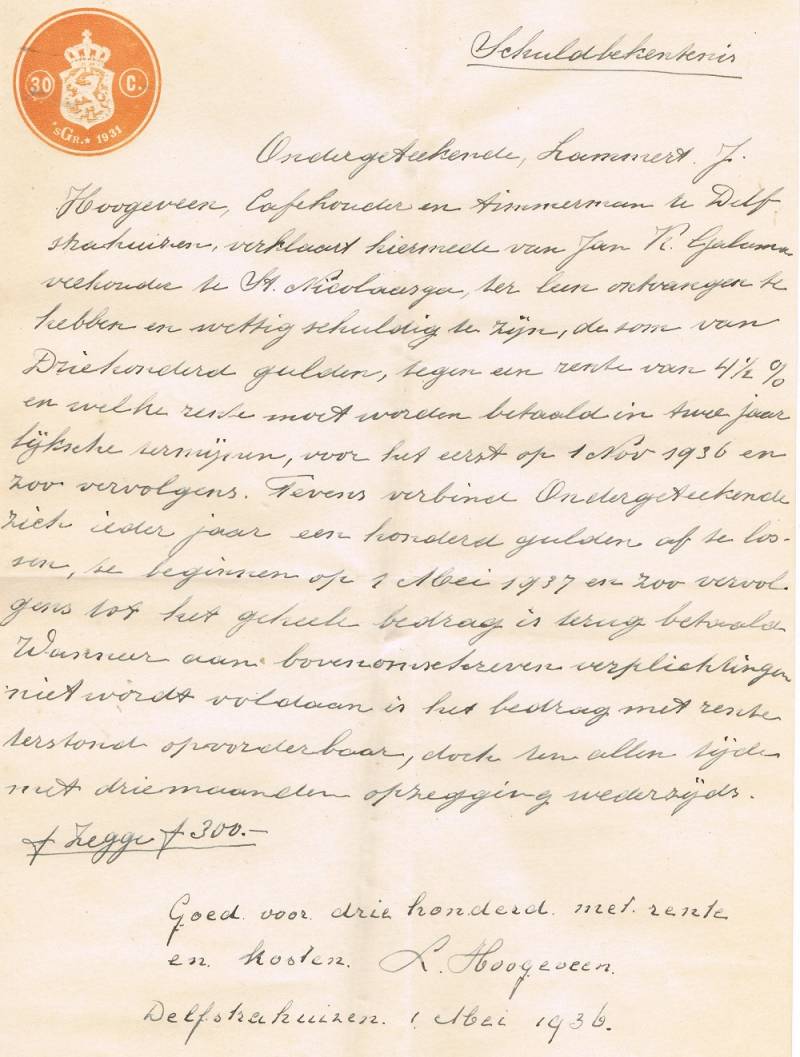 Schuldbekentenis
30 C.
*sGR.* 1931
Ondergeteekende, Lammert. J.
Hoogeveen, Cafehouder en timmerman te Delf
strahuizen, verklaart hiermede van Jan R. Galama
veehouder te St. Nicolaasga, ter leen ontvangen te
hebben en wettig schuldig te zijn, de som van
Driehonderd gulden, tegen een rente van 4½ %
en welke rente moet worden betaald in twee jaar
lijksche termijnen, voor het eerst op 1 Nov 1936 en
zoo vervolgens. Tevens verbind Ondergeteekende
zich ieder jaar een honderd gulden af te los-
sen, te beginnen op 1 Mei 1937 en zoo vervol
gens tot het geheele bedrag is terug betaald
Wanneer aan bovenomschreven verplichtingen
niet wordt voldaan is het bedrag met rente
terstond opvorderbaar, doch ten allen tijde
met driemaanden opzegging wederzijds.
f Zegge f 300.-
Goed. voor. drie honderd. met. rente
en. kosten. L. Hoogeveen.
Delfstrahuizen. 1. Mei 1936.